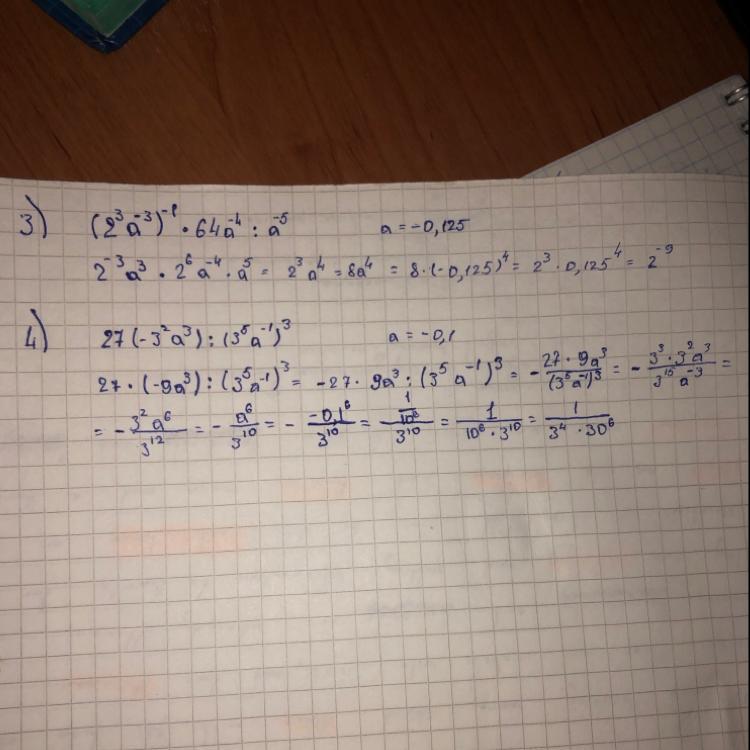 3) (2³a⁻³)⁻¹ · 64a⁻⁴ : a⁻⁵ a = -0,125
2⁻³a³ · 2⁶a⁻⁴ · a⁵ = 2³a⁴ = 8a⁴ = 8·(-0,125)⁴ = 2³ · 0,125⁴ = 2⁻⁹
4) 27(-3²a³) : (3⁵a⁻¹)³ a = -0,1
27 · (-9a³) : (3⁵a⁻¹)³ = -27 · 9a³ : (3⁵a⁻¹)³ = - 27 · 9a³ / (3⁵a⁻¹)³ = - 3³ · 3²a³ / 3¹⁵a⁻³ =
= - 3²a⁶ / 3¹² = - a⁶ / 3¹⁰ = - -0,1⁶ / 3¹⁰ = 1/10⁶ / 3¹⁰ = 1 / 10⁶ · 3¹⁰ = 1 / 3⁴ · 30⁶